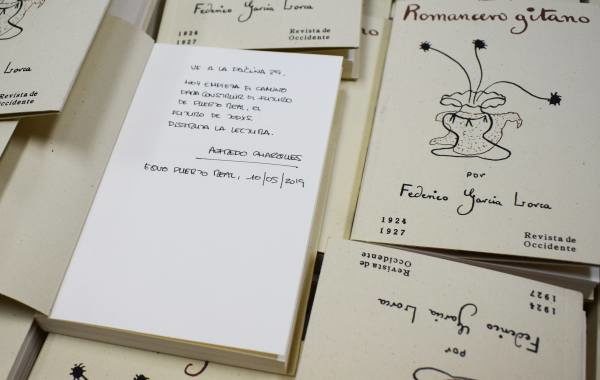 Federico García Lorca
1924
1927
Revista de
Occidente
Lorca
Revista de
Occidente
VE A LA PÁGINA
HOY EMPIEZA EL CAMINO
PARA CONSTRUIR EL FUTURO
DE PUERTO REAL, EL
FUTURO DE TODXS.
DISFRUTA LA LECTURA.
ALFREDO
EQUO PUERTO REAL, 10/05/2019
Romancero gitano
por
Federico García Lorca
1924
1927
Revista de
Occidente
Revista de
Occidente
1924
1927
Federico García Lorca
por